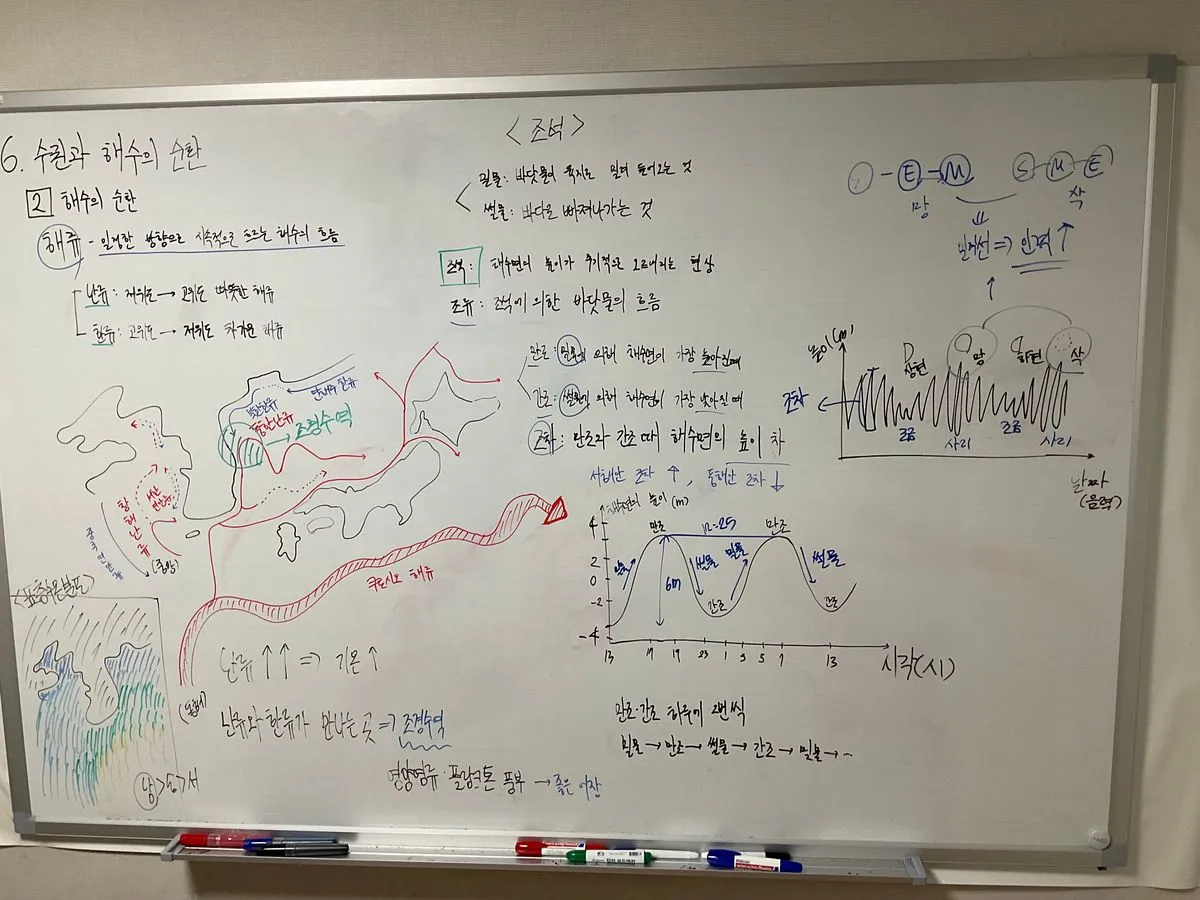 6. 수권과 해수의 순환
2 해수의 순환
해류 - 일정한 방향으로 지속적으로 흐르는 해수의 흐름
난류: 저위도 → 고위도 따뜻한 해류
한류: 고위도 → 저위도 차가운 해류
북한한류
동한난류
→ 조경수역
황해난류
쿠로시오 해류
<표층수온분포>
남>동>서
난류↑↑ => 기온↑
난류와 한류가 만나는 곳 => 조경수역
영양염류·플랑크톤 풍부 → 좋은 어장
<조석>
밀물: 바닷물이 육지로 밀려 들어오는 것
썰물: 바다로 빠져나가는 것
조석: 해수면의 높이가 주기적으로 오르내리는 현상
조류: 조석에 의한 바닷물의 흐름
만조: 밀물에 의해 해수면이 가장 높아진 때
간조: 썰물에 의해 해수면이 가장 낮아진 때
조차: 만조와 간조 때 해수면의 높이 차
서해안 조차↑, 동해안 조차↓
해수면의 높이(m)
4
2
0
-2
-4
만조 12:25 만조
밀물 6m 썰물 밀물 썰물
간조 간조
13 17 19 23 1 3 5 7 13 시각(시)
만조·간조 하루에 2번씩
밀물 → 만조 → 썰물 → 간조 → 밀물 → ··
E - M S M E
망 삭
일직선 => 인력↑
높이(m)
상현 망 하현 삭
조차
조금 사리 조금 사리
날짜
(음력)